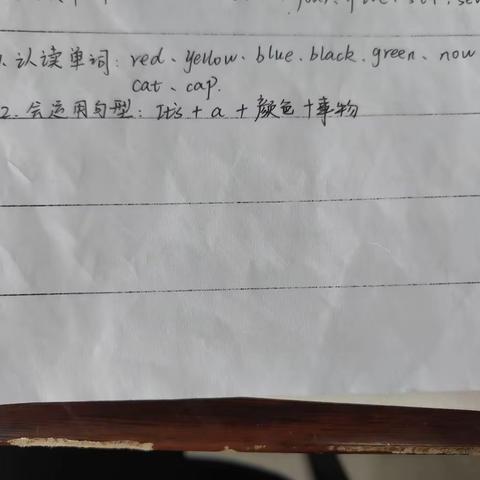 1. 认读单词：red、yellow、blue、black、green、now
cat、cap.
2. 会运用句型：It's + a + 颜色 + 事物